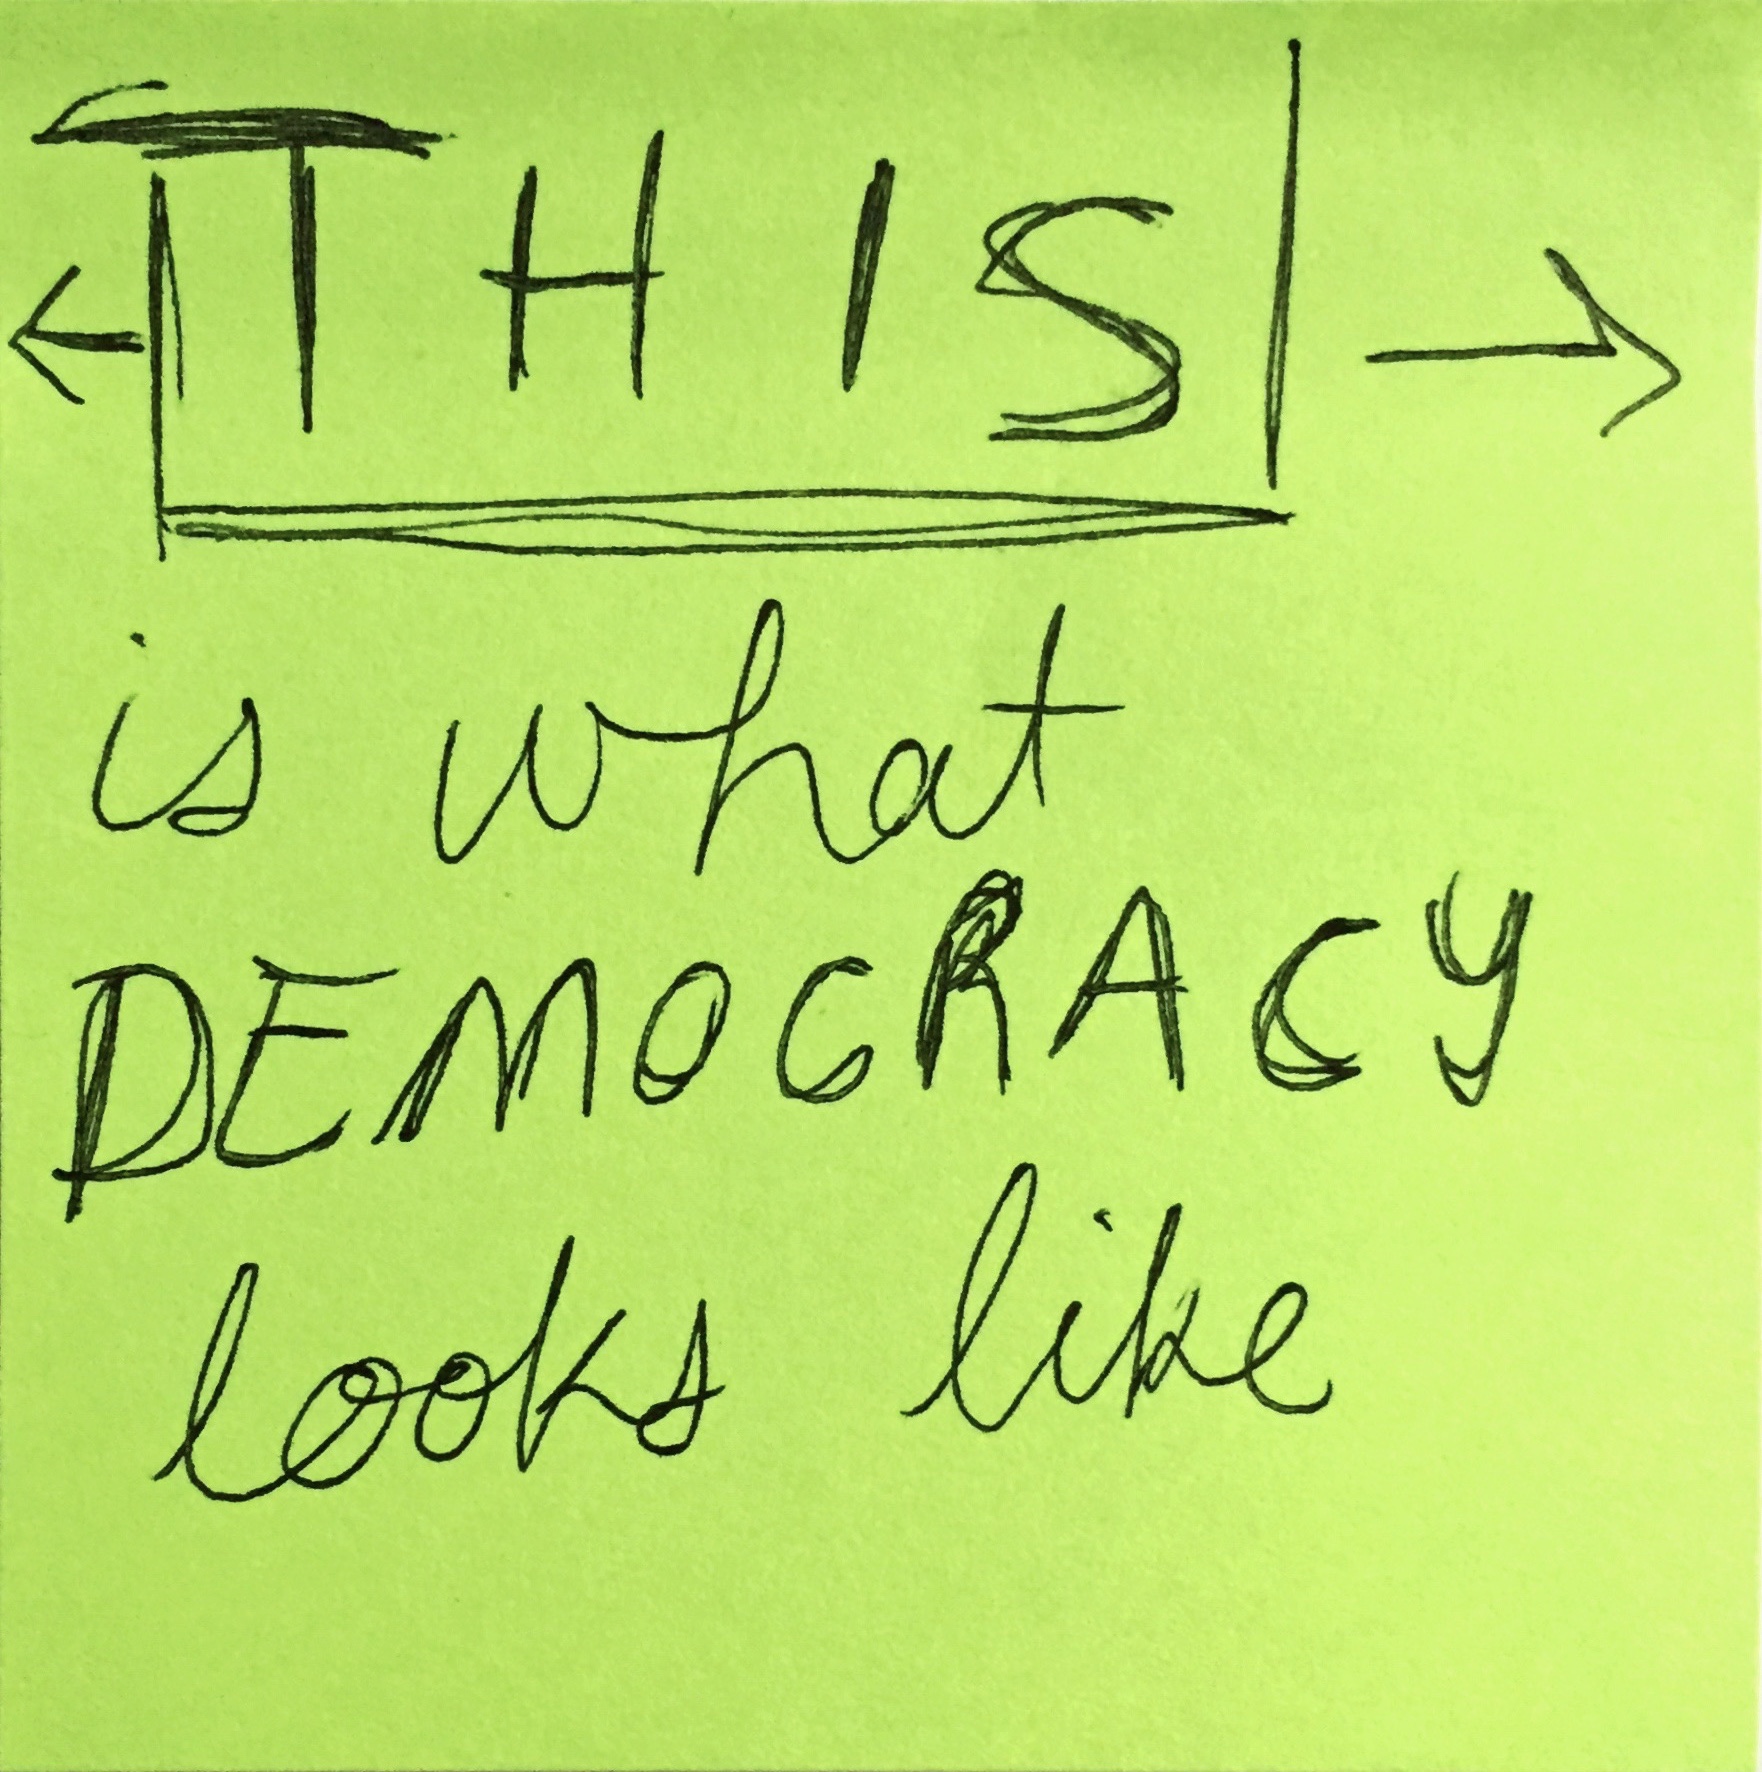 THIS
is what
DEMOCRACY
looks like